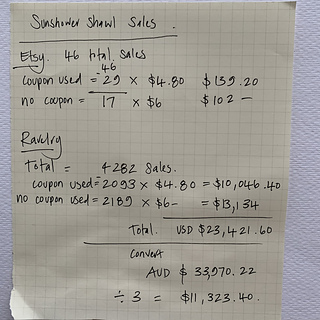 Sunshower Shawl Sales.
Etsy. 46 total sales
46
coupon used = 29 × $4.80 $139.20
no coupon = 17 × $6 $102 –
Ravelry
Total = 4282 sales.
coupon used = 2093 × $4.80 = $10,046.40
no coupon used = 2189 × $6– = $13,134
Total. USD $23,421.60
Convert
AUD $ 33,970.22
÷ 3 = $11,323.40.